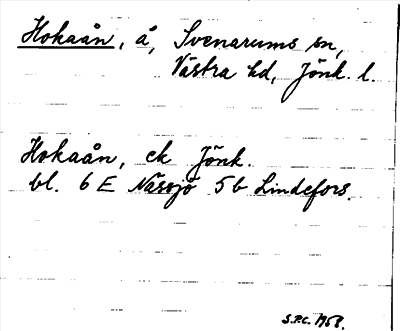 Hokaån, å, Svenarums sn,
Västra hd, Jönk. l.
Hokaån, ek Jönk.
bl. 6 E Nässjö 5b Lindefors.
S.P.C. 1958.